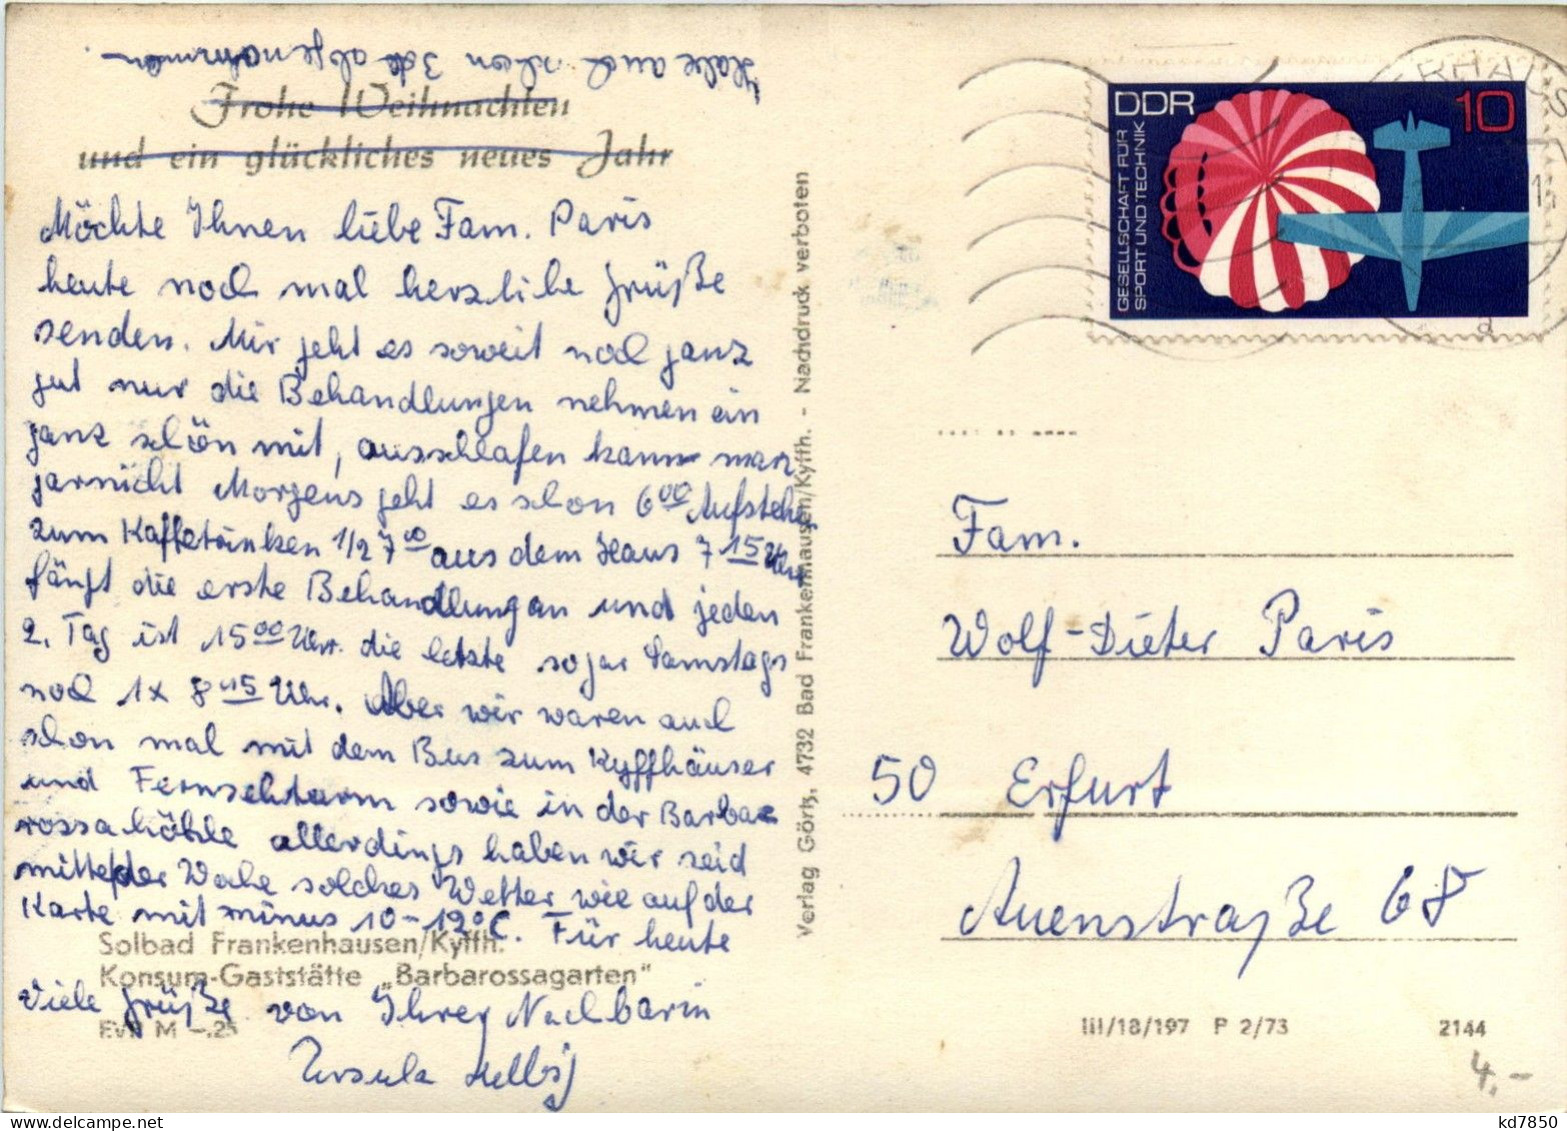 Habe auch schon 3 de abgenommen
Frohe Weihnachten
und ein glückliches neues Jahr
Möchte Ihnen liebe Fam. Paris
heute noch mal herzliche Grüße
senden. Mir geht es soweit noch ganz
gut nur die Behandlungen nehmen ein
ganz schön mit, ausschlafen kann man
garnicht Morgens geht es schon 6 00 Aufstehn
zum Kaffetrinken 1/2 7 00 aus dem Haus 7 15 Uhr
fängt die erste Behandlung an und jeden
2. Tag ist 15 00 Uhr. die letzte sogar Samstags
noch 1x 8 45 Uhr. Aber wir waren auch
schon mal mit dem Bus zum Kyffhäuser
und Fernsehturm sowie in der Barba
rossahöhle allerdings haben wir seid
mitte der Woche solches Wetter wie auf der
Karte mit minus 10-12°C. Für heute
Solbad Frankenhausen/Kyffh.
Konsum-Gaststätte „Barbarossagarten"
viele Grüße von Ihrer Nachbarin
EVP M -.25
Ursula Helbig
Verlag Görtz, 4732 Bad Frankenhausen/Kyffh. - Nachdruck verboten
DDR
10
GESELLSCHAFT FÜR
SPORT UND TECHNIK
Fam.
Wolf-Dieter Paris
50 Erfurt
Auenstraße 68
III/18/197 P 2/73
2144
4,-
kd7850